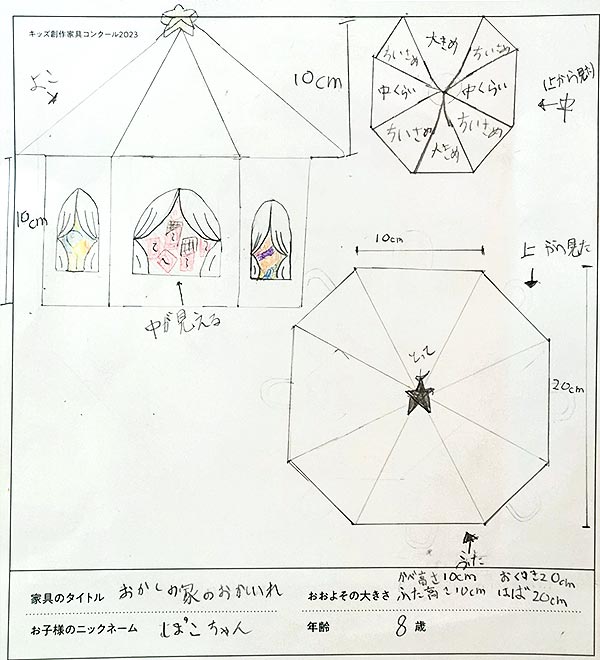 キッズ創作家具コンクール2023
よこ
10cm
ちいさめ 大きめ ちいさめ
中くらい 中くらい
ちいさめ 大きめ ちいさめ
(上から見た)
←中
10cm
中が見える
10cm
上から見た
とって
20cm
ふた
家具のタイトル おかしの家のおかしいれ
おおよその大きさ 高さ10cm おくゆき20cm
ふた高さ10cm はば20cm
お子様のニックネーム ちゃん
年齢 8歳